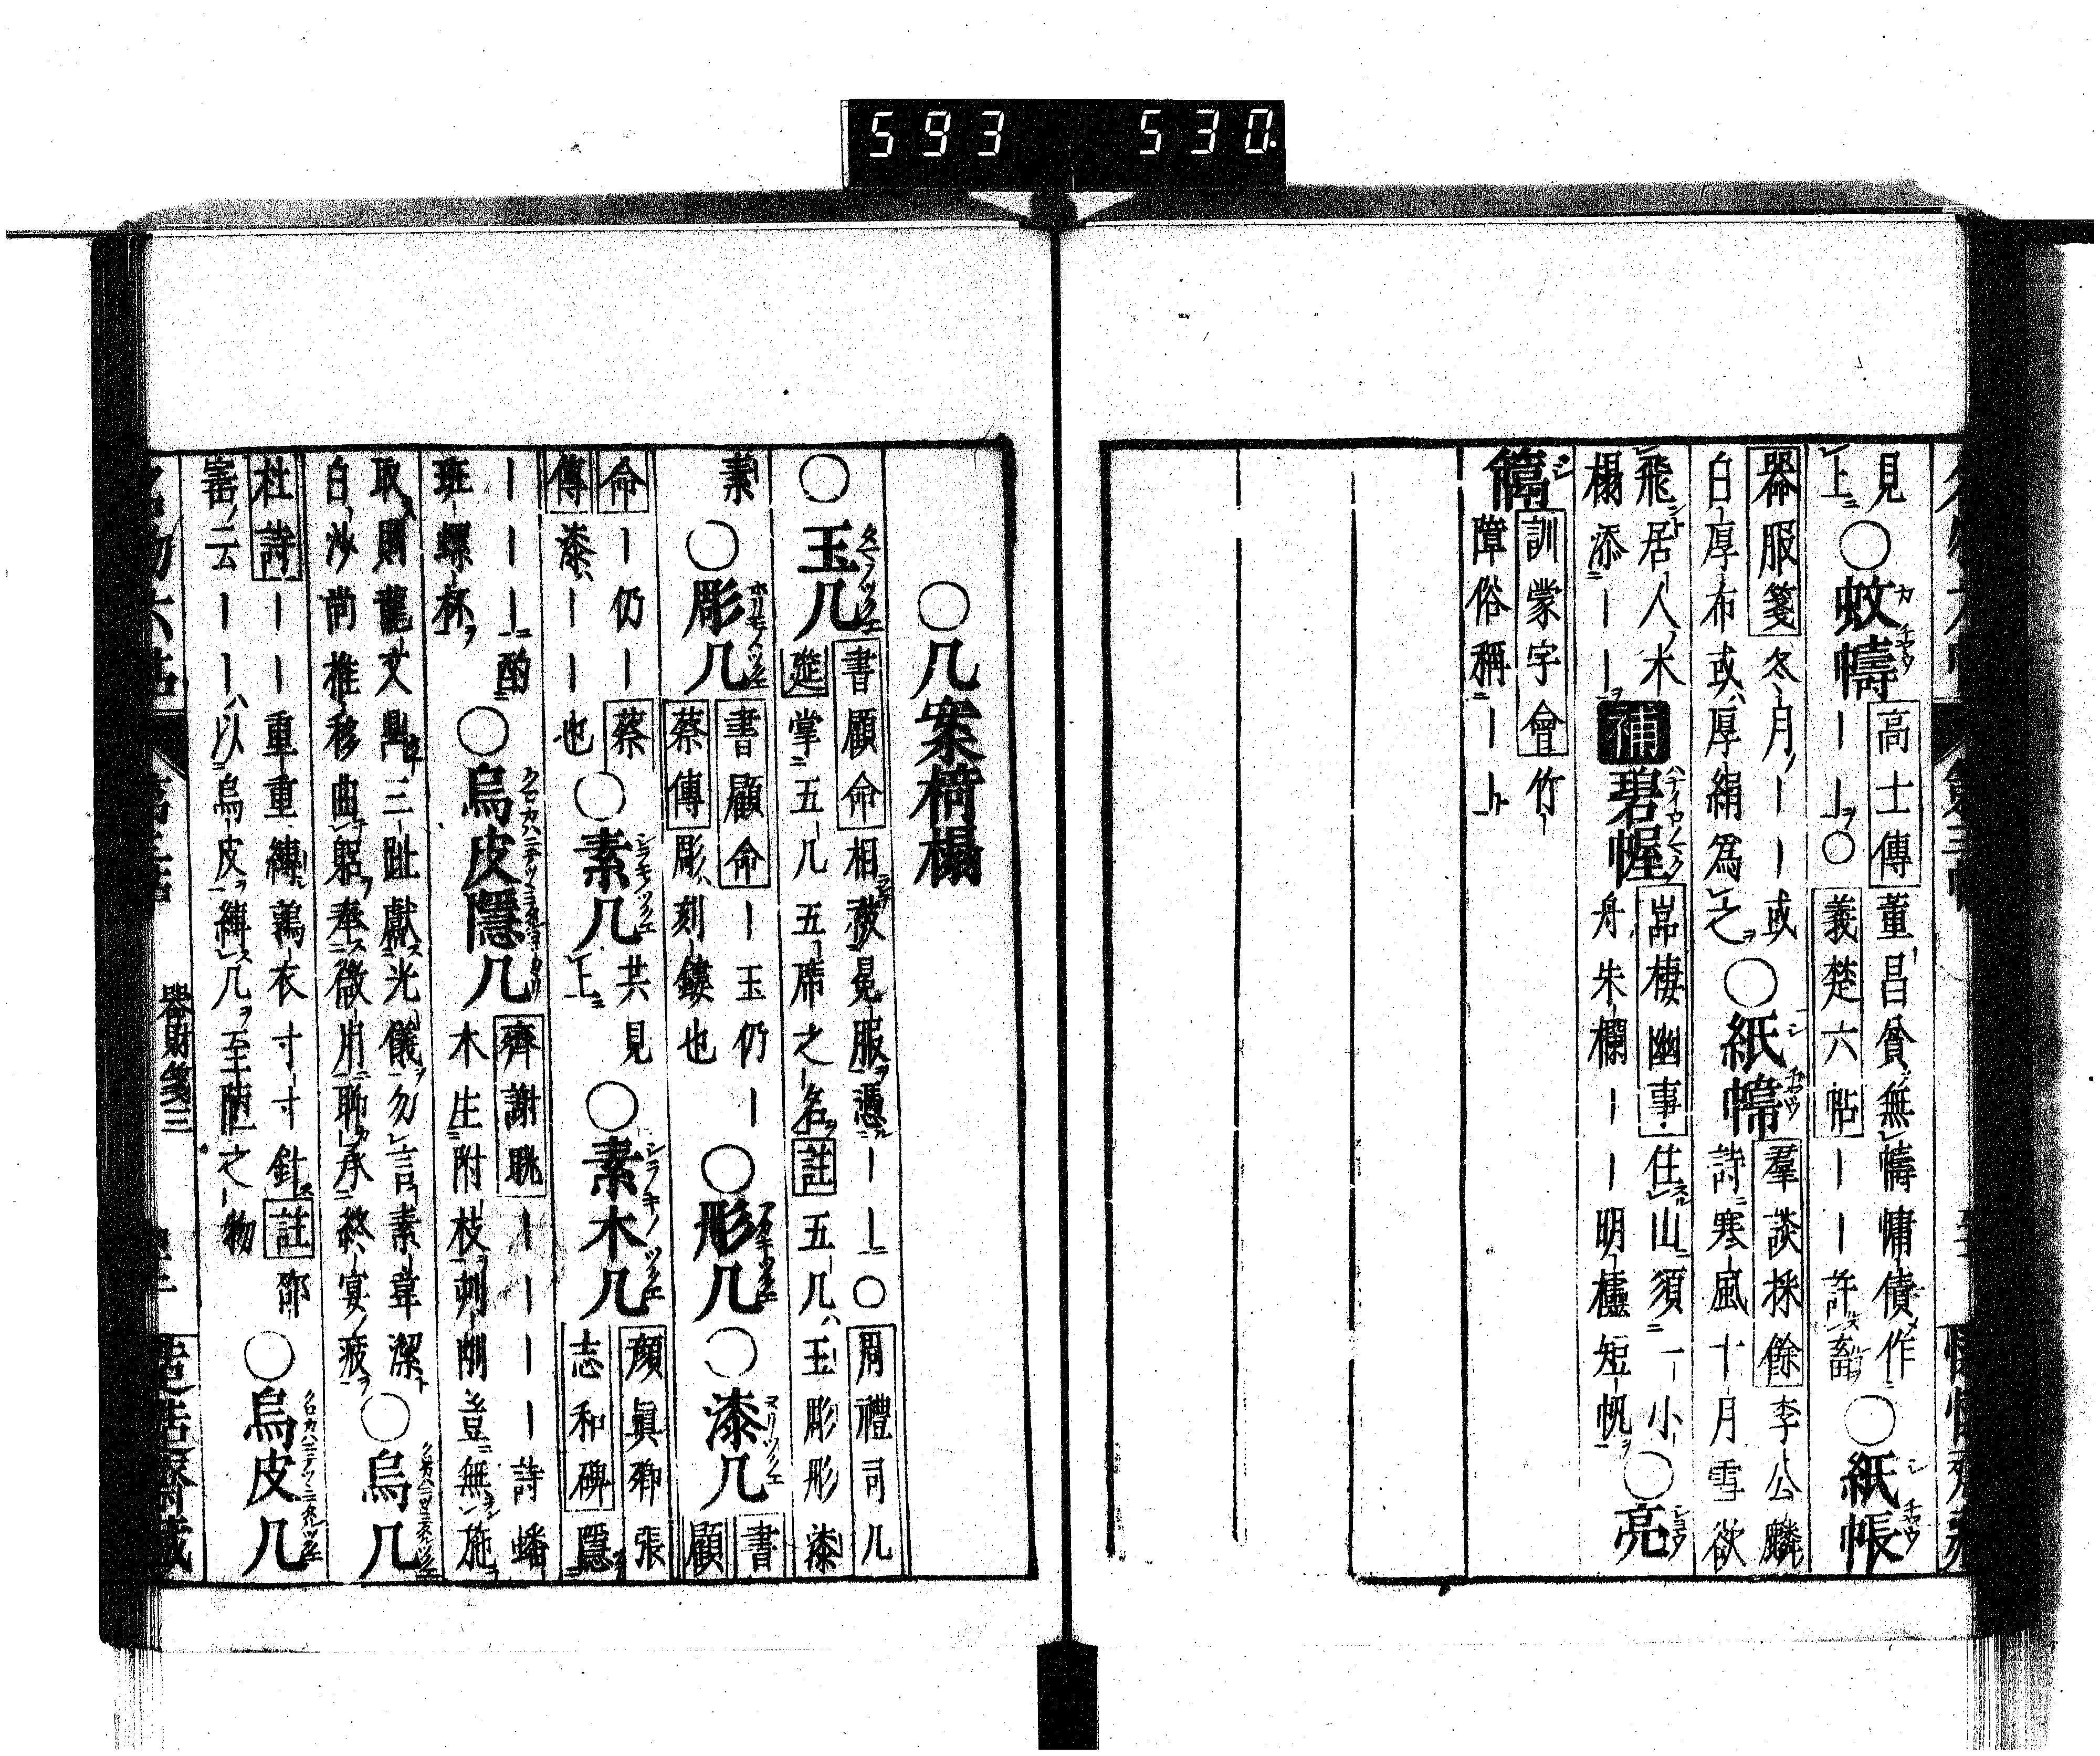 593 530
見
上 ○蚊幬 高士傳 董昌貧無幬傭債作
――○ 義楚六帖 ――許畜 ○紙帳
器服箋 冬月――或
白厚布或厚絹爲之 ○紙幬 羣談採餘 李公麟
詩寒風十月雪欲
飛居人木
榻添―― 補 碧幄 嵓棲幽事 住山須一小
舟朱欄――明櫺短帆 ○亮
篟 訓蒙字會 竹―
障俗稱―
○几案椅榻
○玉几 書顧命 相被冕服憑――○ 周禮司几
筵 掌五几五席之名 註 五几玉彫彤漆
素 ○彫几 書顧命 ―玉仍―
蔡傳 彫刻鏤也 ○彤几 ○漆几 書
顧
命 ―仍― 蔡
傳 漆――也 ○素几 共見
上 ○素木几 顔眞卿張
志和碑 隱
――――酌
班螺杯 ○烏皮隱几 齊謝朓 ――――詩蟠
木生附枝刺削豈無施
取則龍文鼎三趾獻光儀勿言素韋潔
白沙尚推移曲躬奉微用聊承終宴疲 ○烏几
杜詩 ――重重縛鶉衣寸寸針 註 邵
寚云――以烏皮縛几至陋之物 ○烏皮几
器財箋三